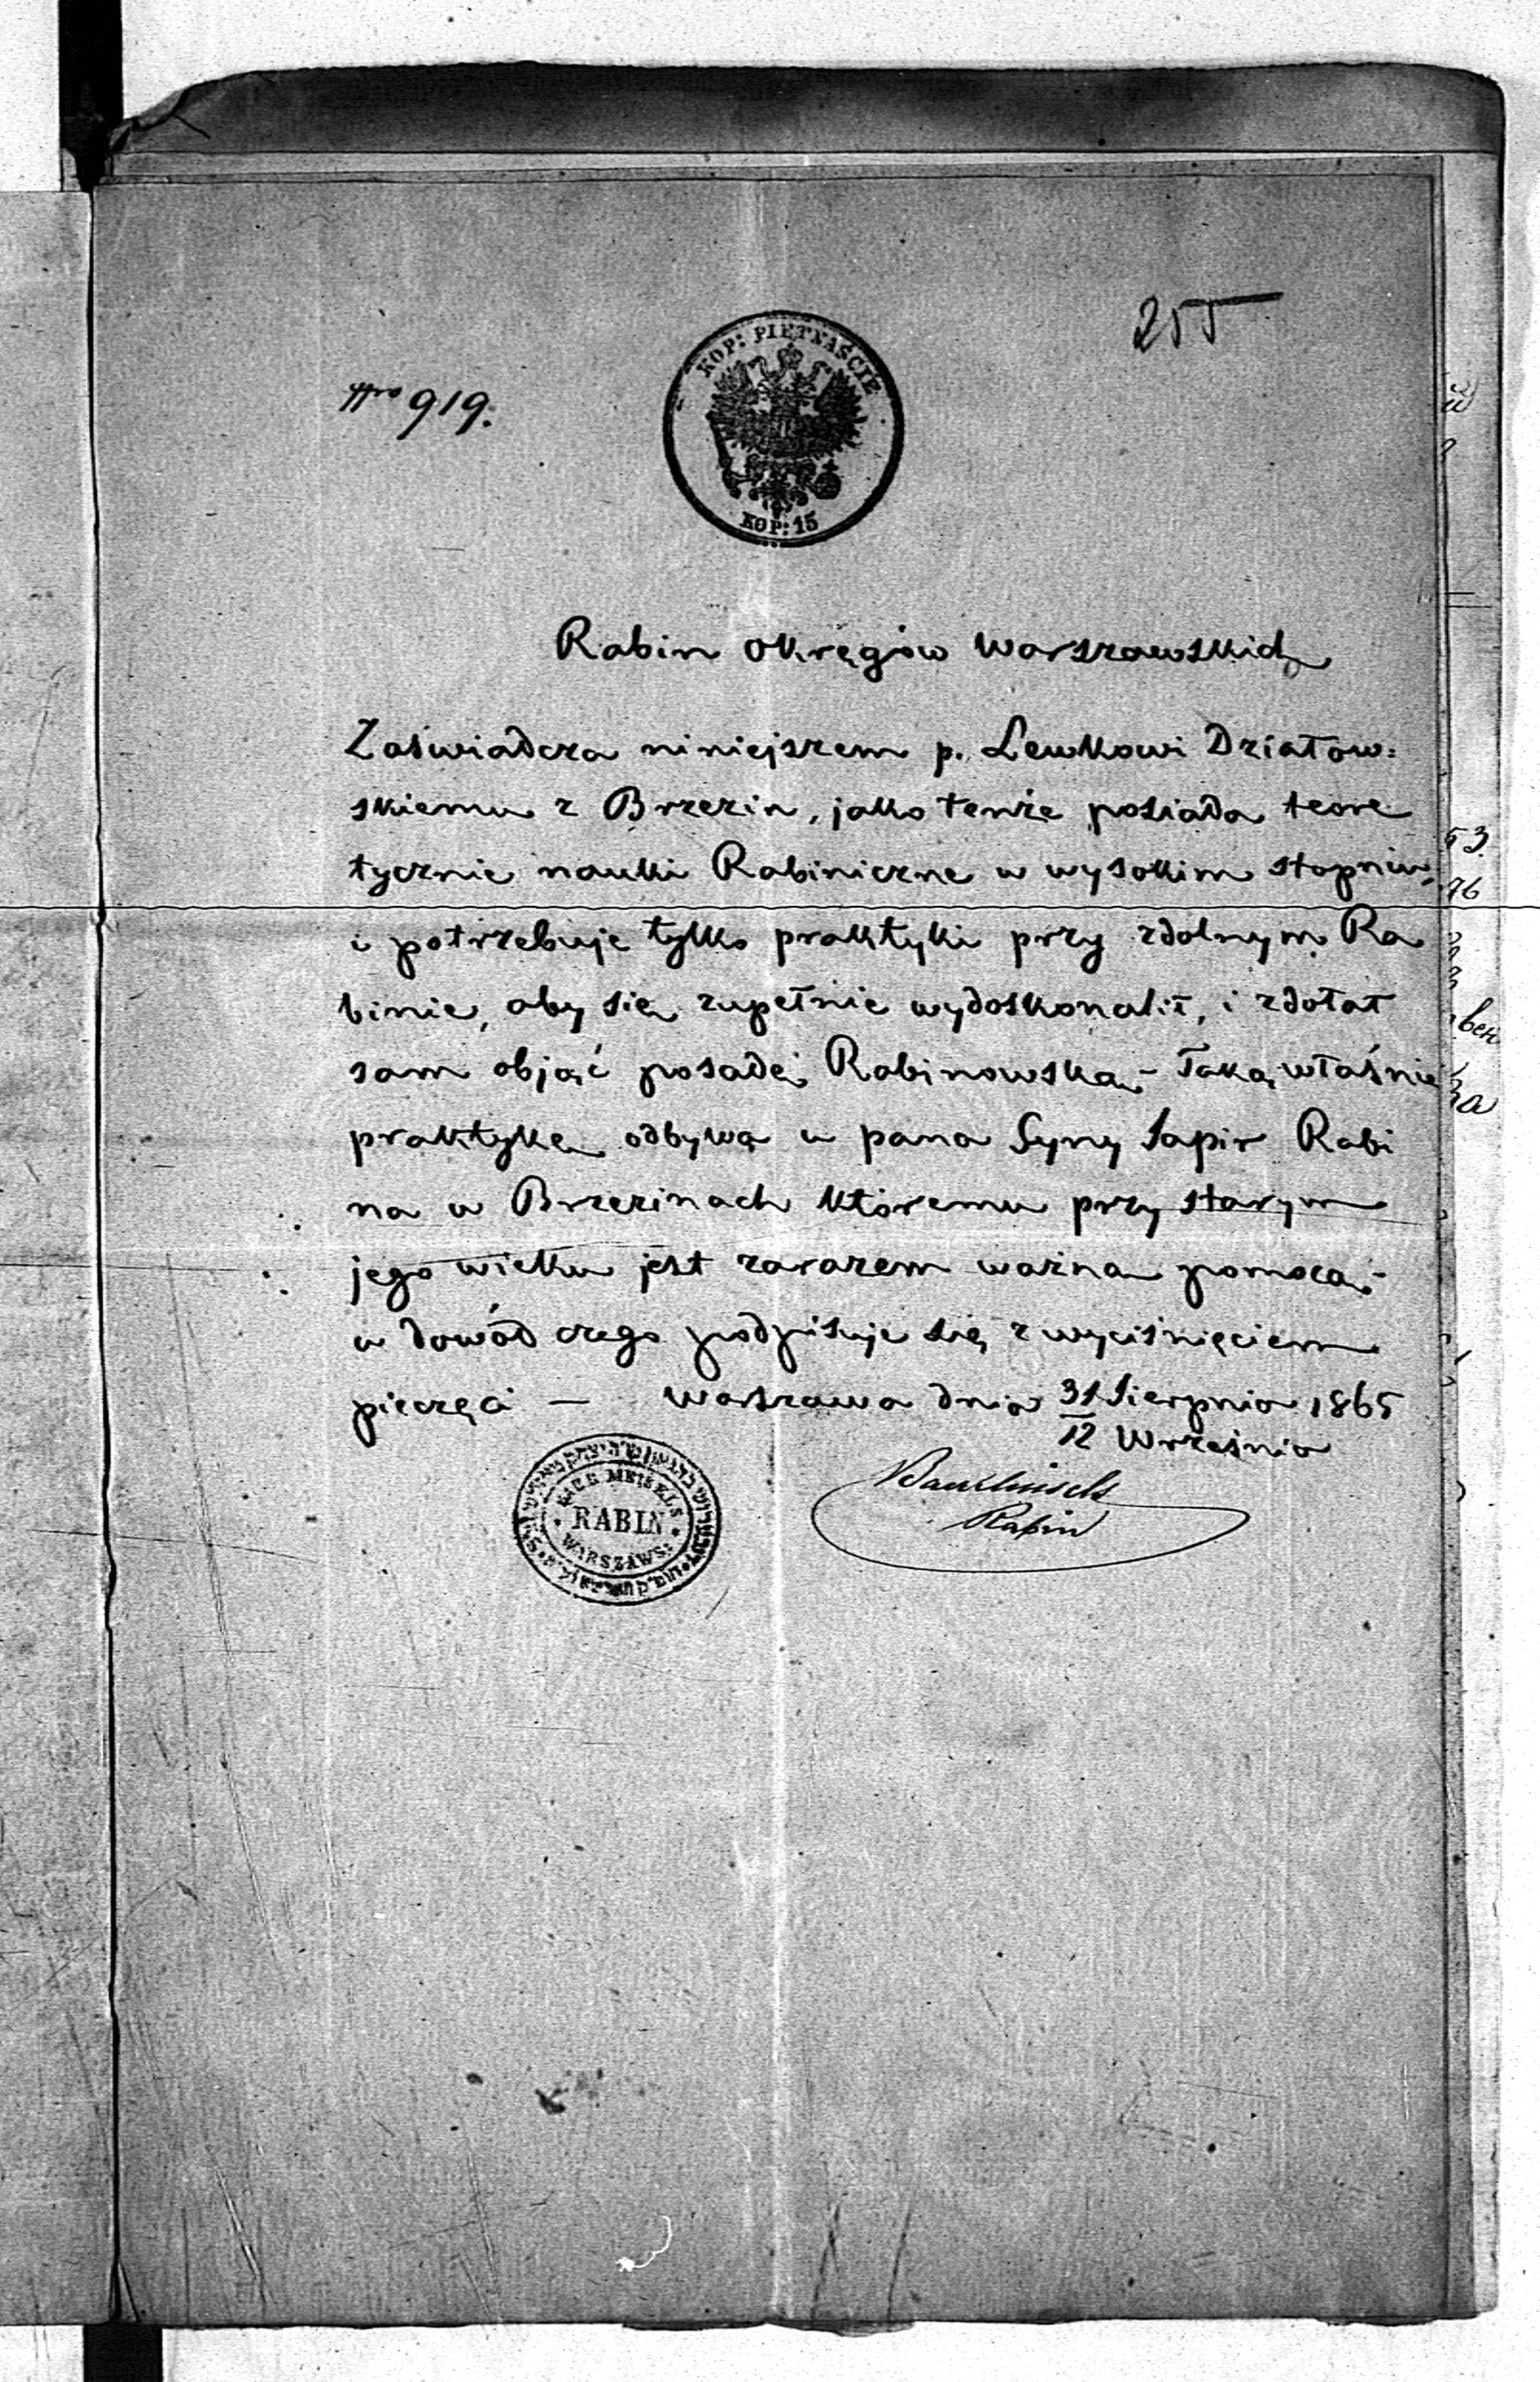 255
KOP: PIĘTNAŚCIE
KOP: 15
Nro 919.
Rabin Okręgów Warszawskich
Zaświadcza niniejszem p. Lewkowi Działow=
skiemu z Brzezin, jako tenże posiada teore
tycznie nauki Rabiniczne w wysokim stopniu,
i potrzebuje tylko praktyki przy zdolnym Ra
binie, aby się zupełnie wydoskonalił, i zdołał
sam objąć posadę Rabinowską – Taką właśnie
praktykę odbywa u pana Syny Sapir Rabi
na w Brzezinach któremu przy starym
jego wieku jest zarazem ważną pomocą –
w dowód czego podpisuje się z wyciśnięciem
pieczęci — Warszawa dnia 31 Sierpnia 1865
12 Września
MEISELS
RABIN
WARSZAWS:
Rabin
53.
76
вен
за